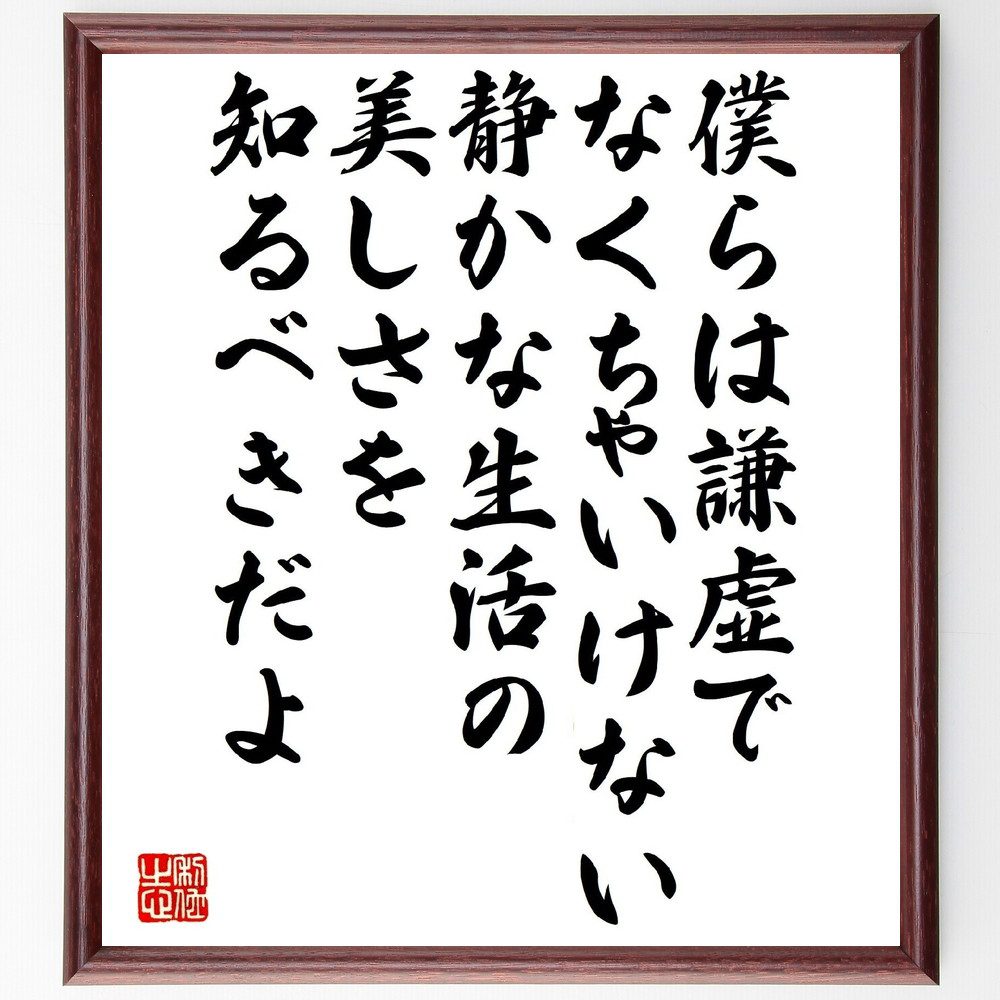 僕らは謙虚で
なくちゃいけない
静かな生活の
美しさを
知るべきだよ